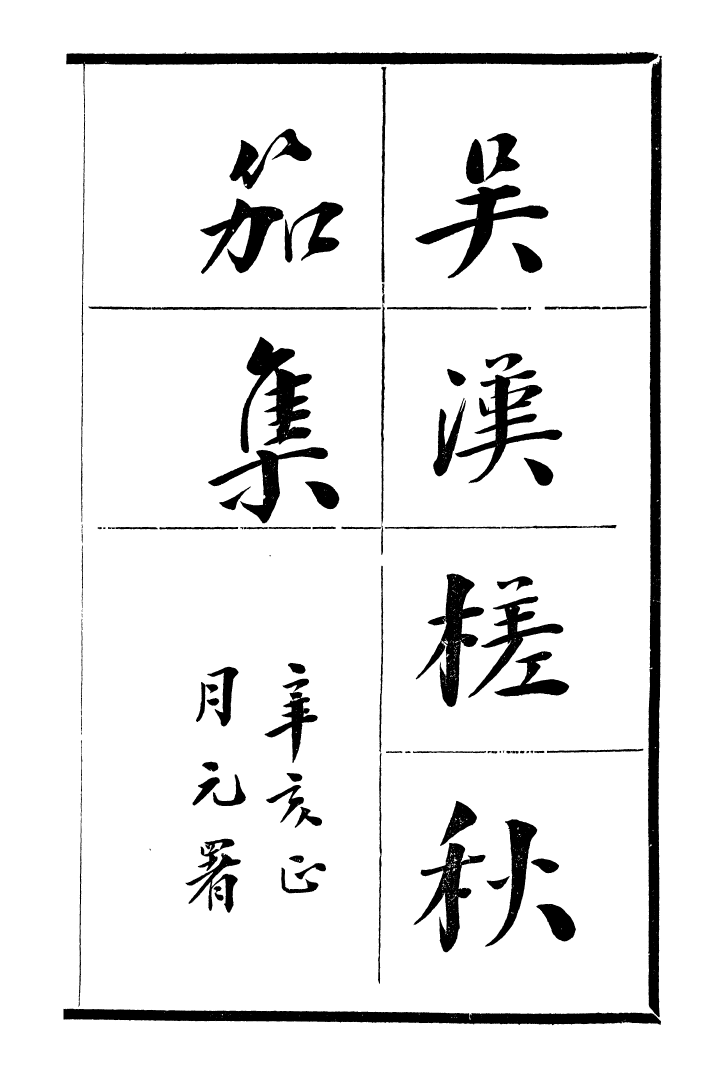 吴漢槎秋
笳集
辛亥正
月元署